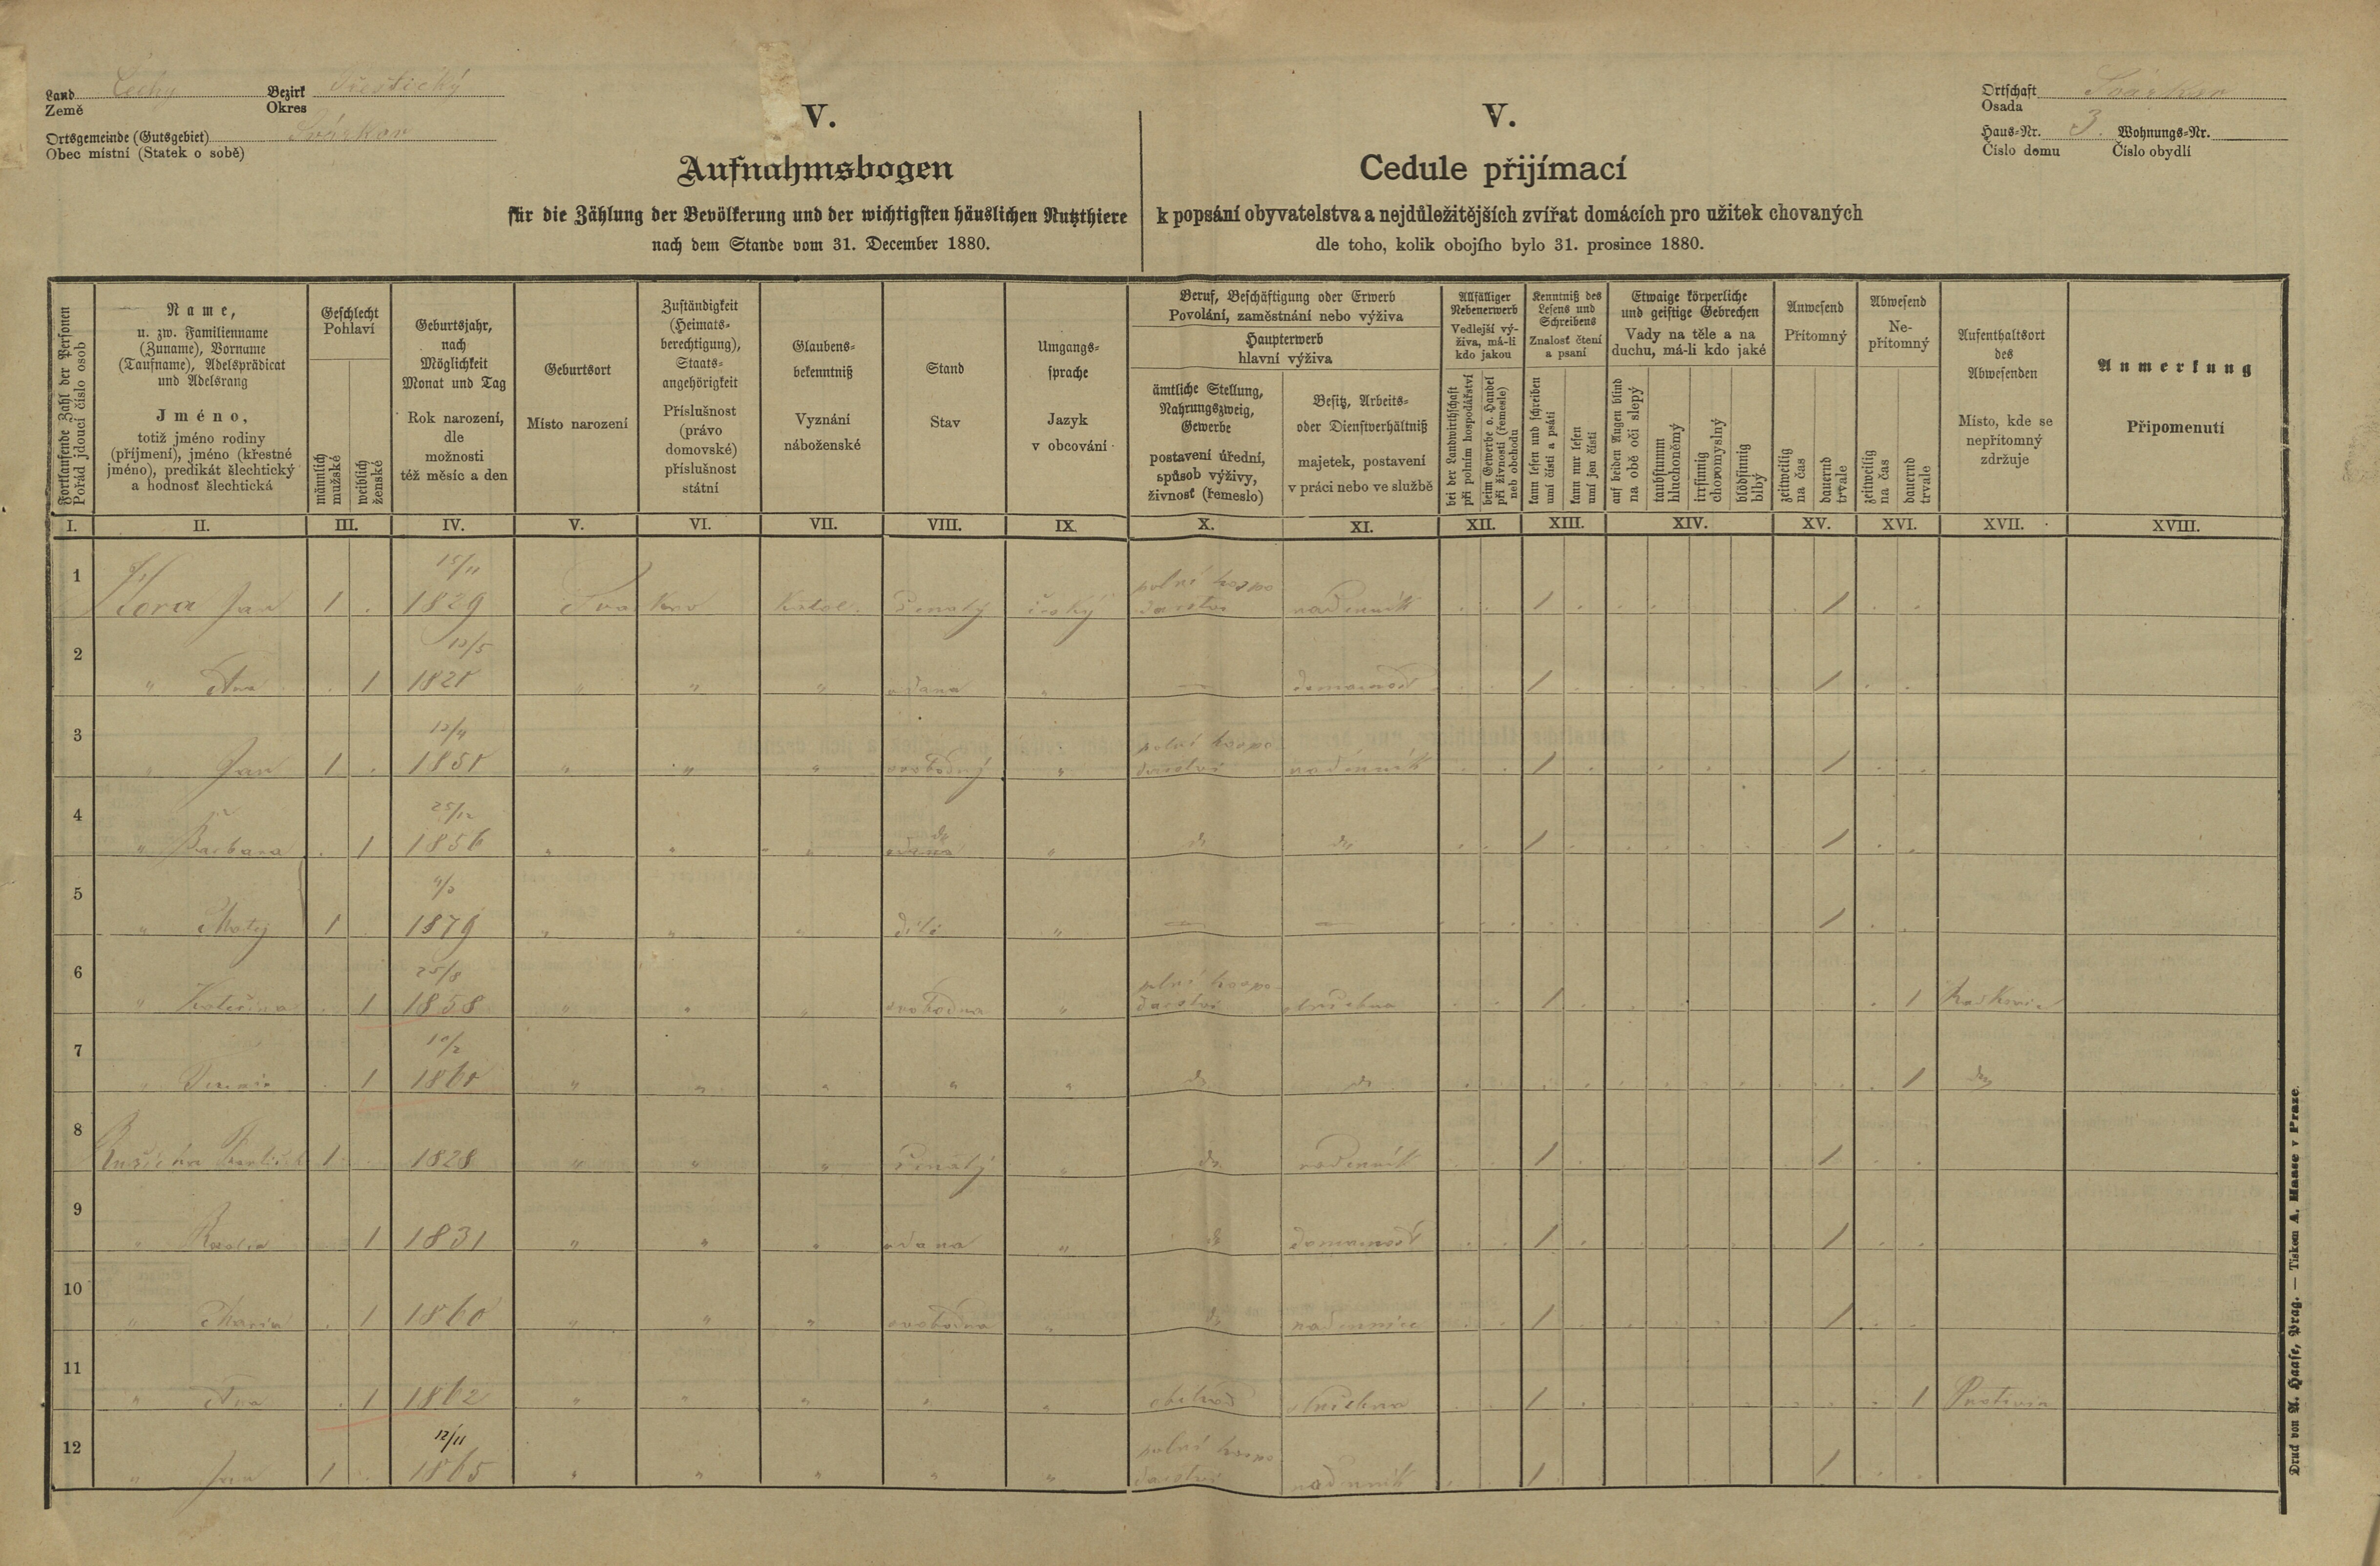 Land Čechy Bezirk Přeštický
Země Okres
Ortsgemeinde (Gutsgebiet) Svárkov
Obec místní (Statek o sobě)
Ortschaft Svárkov
Osada
Haus-Nr. 3. Wohnungs-Nr.
Číslo domu Číslo obydlí
V.
Aufnahmsbogen
für die Zählung der Bevölkerung und der wichtigsten häuslichen Nutzthiere
nach dem Stande vom 31. December 1880.
V.
Cedule přijímací
k popsání obyvatelstva a nejdůležitějších zvířat domácích pro užitek chovaných
dle toho, kolik obojího bylo 31. prosince 1880.
Fortlaufende Zahl der Personen
Pořád jdoucí číslo osob
Name,
u. zw. Familienname
(Zuname), Vorname
(Taufname), Adelsprädicat
und Adelsrang
Jméno,
totiž jméno rodiny
(příjmení), jméno (křestné
jméno), predikát šlechtický
a hodnosť šlechtická
Geschlecht
Pohlaví
männlich
mužské
weiblich
ženské
Geburtsjahr,
nach
Möglichkeit
Monat und Tag
Rok narození,
dle
možnosti
též měsíc a den
Geburtsort
Místo narození
Zuständigkeit
(Heimats-
berechtigung),
Staats-
angehörigkeit
Příslušnost
(právo
domovské)
příslušnost
státní
Glaubens-
bekenntniß
Vyznání
náboženské
Stand
Stav
Umgangs-
sprache
Jazyk
v obcování
Beruf, Beschäftigung oder Erwerb
Povolání, zaměstnání nebo výživa
Haupterwerb
hlavní výživa
ämtliche Stellung,
Nahrungszweig,
Gewerbe
postavení úřední,
spůsob výživy,
živnosť (řemeslo)
Besitz, Arbeits-
oder Dienstverhältniß
majetek, postavení
v práci nebo ve službě
Allfälliger
Nebenerwerb
Vedlejší vý-
živa, má-li
kdo jakou
bei der Landwirthschaft
při polním hospodářství
beim Gewerbe o. Handel
při živnosti (řemesle)
neb obchodu
Kenntniß des
Lesens und
Schreibens
Znalosť čtení
a psaní
kann lesen und schreiben
umí čísti a psáti
kann nur lesen
umí jen čísti
Etwaige körperliche
und geistige Gebrechen
Vady na těle a na
duchu, má-li kdo jaké
auf beiden Augen blind
na obě oči slepý
taubstumm
hluchoněmý
irrsinnig
choromyslný
blödsinnig
blbý
Anwesend
Přítomný
zeitweilig
na čas
dauernd
trvale
Abwesend
Ne-
přítomný
zeitweilig
na čas
dauernd
trvale
Aufenthaltsort
des
Abwesenden
Místo, kde se
nepřítomný
zdržuje
Anmerkung
Připomenutí
I. II. III. IV. V. VI. VII. VIII. IX. X. XI. XII. XIII. XIV. XV. XVI. XVII. XVIII.
15/11 polní hospo
1 Hora Jan 1 1829 Svarkov Katol. ženatý český dářství nadenník 1 1
2 " 1 " " " vdana " — domacnosť 1 1
polní hospo
3 " Jan 1 " " " svobodný " dářství nadenník 1 1
25/12
4 " Barbara 1 1856 " " " " 1 1
5 " Matěj 1 1879 " " " dítě " — — 1
25/8 polní hospo-
6 " Kateřina 1 1858 " " " svobodna " dářství služebna 1 1
7 " 1 " " " " " 1
8 Růžička 1 1828 " " " ženatý " nadenník 1 1
9 " 1 1831 " " " vdana " domacnosť 1 1
10 " Maria 1 1860 " " " svobodna " nadennice 1 1
11 " 1 1862 " " " " " obchod služebna 1 1
12/11 polní hospo
12 " Jan 1 1865 " " " " " dářství nadenník 1 1
Druck von A. Haase, Prag. — Tiskem A. Haase v Praze.